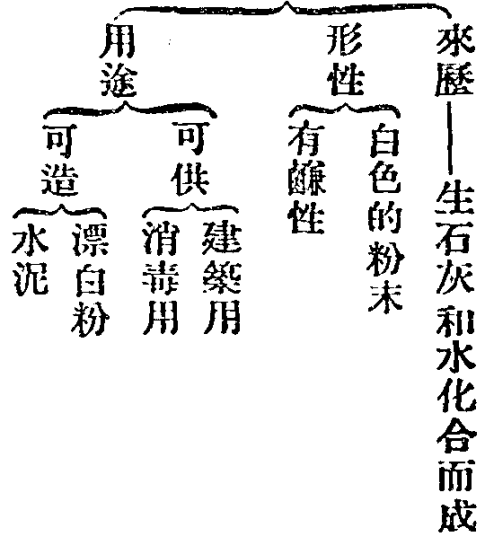 來歷
生石灰和水化合而成
形性
白色的粉末
有鹼性
用途
可供
建築用
消毒用
可造
漂白粉
水泥